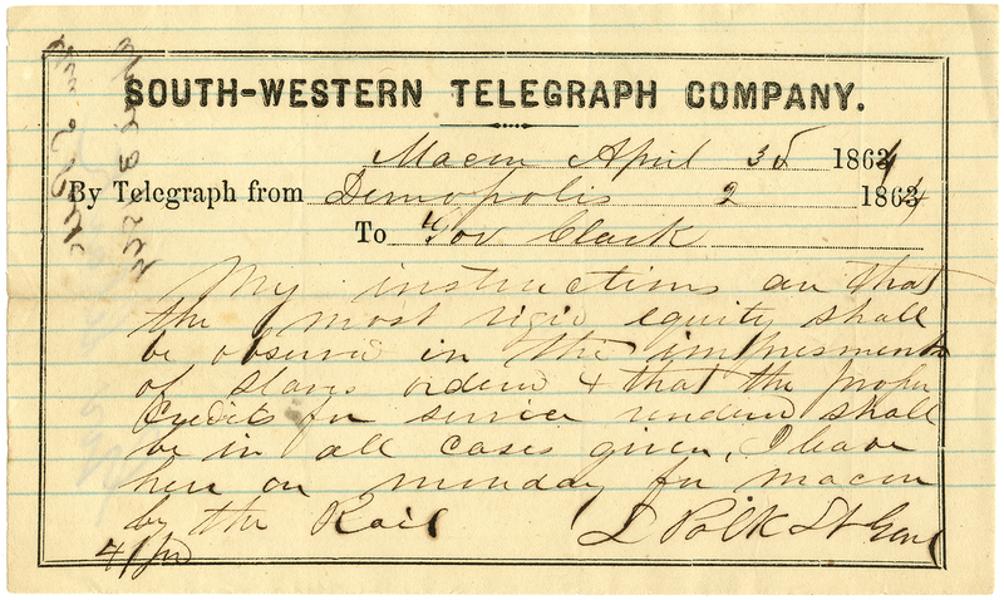 SOUTH-WESTERN TELEGRAPH COMPANY.
Macon April 3d 1864
By Telegraph from Demopolis 2 1864
To Gov Clark
My instructions are that
the most rigid equity shall
be observed in the impressments
of slaves ordered & that the proper
Credits for service rendered shall
be in all cases given, I leave
here on monday for macon
by the Rail L Polk Lt Genl